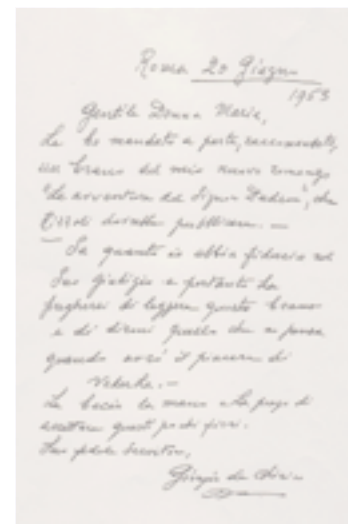 Roma 20 Giugno
1953
Gentile Donna Maria,
Le ho mandato a parte, raccomandato,
un brano del mio nuovo romanzo
"Le avventure del Signor Dudron", che
dovrebbe pubblicare. —
— Sa quanto io abbia fiducia nel
Suo giudizio e pertanto La
pregherei di leggere questo brano
e di dirmi quello che ne pensa
quando avrò il piacere di
vederla. —
Le bacio la mano e La prego di
accettare questi pochi fiori.
Suo
Giorgio de Chirico